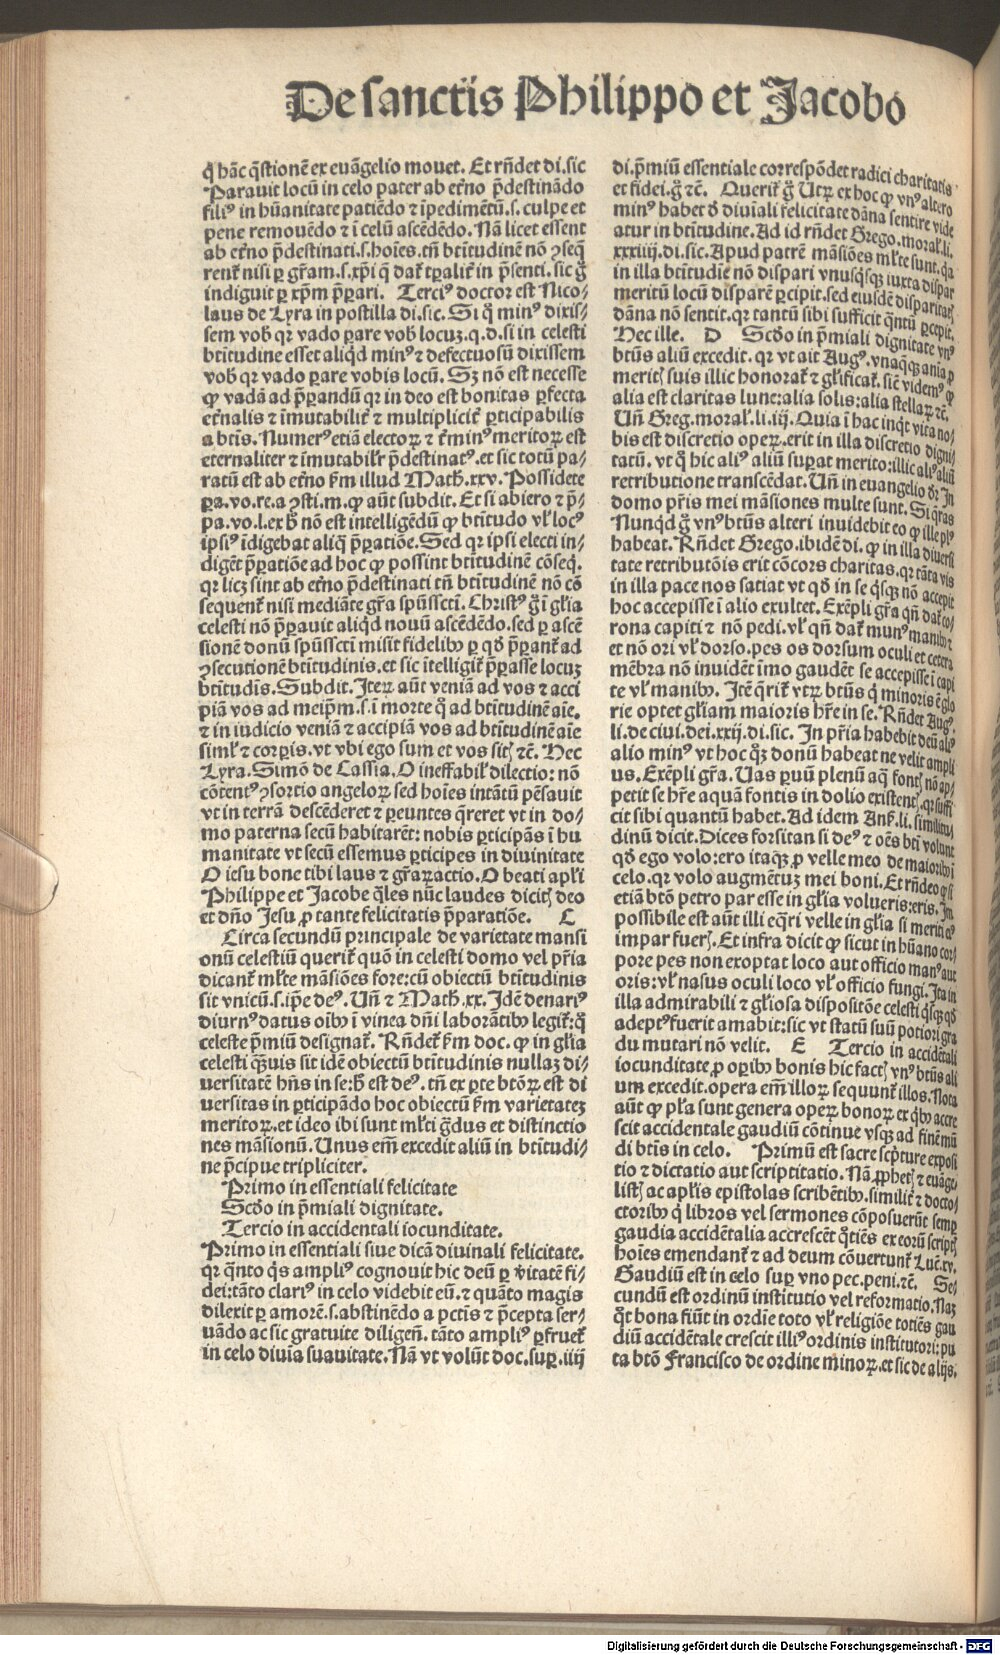 De sanctis Philippo et Jacobo
q̃ hāc q̄stionē ex euāgelio mouet. Et rñdet di. sic
Parauit locū in celo pater ab et̃no p̄destinādo
filiꝰ in hūanitate patiēdo ⁊ īpedimētū.s. culpe et
pene remouēdo ⁊ ī celū ascēdēdo. Nā licet essent
ab et̃no p̄destinati.s. hoīes. tñ btītudinē nō ꝯseq̄
renť nisi ꝑ gr̄am.s. xp̄i q̄ dať tꝑaliť in p̄senti. sic g̊
indiguit ꝑ xp̄m p̄ꝑari. Terciꝰ doctor est Nico/
laus de Lyra in postilla di. sic. Si q̊ minꝰ dixis/
sem vob̄ qꝛ vado ꝑare vob̄ locuz. q.d. si in celesti
btītudine esset aliqd minꝰ ⁊ defectuosū dixissem
vob̄ qꝛ vado ꝑare vobis locū. Sꝫ nō est necesse
ꝙ vadā ad p̄ꝑandū qꝛ in deo est bonitas ꝑfecta
et̃nalis ⁊ īmutabiliť ⁊ multipliciť ꝑticipabilis
a btīs. Numerꝰ etiā electoꝝ ⁊ ťminꝰ meritoꝝ est
eternaliter ⁊ īmutabilr̄ p̄destinatꝰ. et sic totū pa/
ratū est ab et̃no ẜm illud Math̄. xxv. Possidete
ꝑa. vo. re. a ꝯsti. m. ꝙ aūt subdit. Et si abiero ⁊ p̄/
pa. vo. l. ex h̄ nō est intelligēdū ꝙ btītudo vľ locꝰ
ipsiꝰ īdigebat aliq̄ p̄ꝑatiōe. Sed qꝛ ipsi electi in/
digēt p̄ꝑatiōe ad hoc ꝙ possint btītudinē cōseq̄.
qꝛ licꝫ sint ab et̃no p̄destinati tñ btītudinē nō cō
sequenť nisi mediāte gr̄a spūssctī. Christꝰ g̊ ī gľia
celesti nō p̄ꝑauit aliqd nouū ascēdēdo. sed ꝑ ascē
sionē donū spūssctī misit fidelibꝰ ꝑ qd̄ p̄ꝑanť ad
ꝯsecutionē btītudinis. et sic ītelligiť p̄ꝑasse locuz
btītudīs. Subdit. Iteꝝ aūt veniā ad vos ⁊ acci
piā vos ad meip̄m.s. ī morte q̊ ad btītudinē aīe.
⁊ in iudicio veniā ⁊ accipiā vos ad btītudinē aīe
simľ ⁊ corꝑis. vt vbi ego sum et vos sitꝭ ⁊c. Hec
Lyra. Simō de Cassia. O ineffabiľ dilectio: nō
cōtentꝰ ꝯsortio angeloꝝ sed hoīes intātū pēsauit
vt in terrā descēderet ⁊ ꝑeuntes q̄reret vt in do/
mo paterna secū habitarēt: nobis ꝑticipās ī hu
manitate vt secū essemus ꝑticipes in diuinitate
O iesu bone tibi laus ⁊ gr̄aꝝ actio. O beati apľi
Philippe et Jacobe q̄les nūc laudes dicitꝭ deo
et dño Jesu ꝓ tante felicitatis p̄ꝑatiōe. C
Circa secundū principale de varietate mansi
onū celestiū queriť quō in celesti domo vel pr̄ia
dicanť mľte māsiōes fore: cū obiectū btītudinis
sit vnicū.s. ip̄e deꝰ. Uñ ⁊ Math̄. xx. Idē denariꝰ
diurnꝰ datus oībꝰ ī vinea dñi laborātibꝰ legiť: q̊
celeste p̄miū designať. Rñdeť ẜm doc. ꝙ in gľia
celesti q̄uis sit idē obiectū btītudinis nullaz di/
uersitatē hñs in se: h̄ est deꝰ. tñ ex ꝑte btōꝝ est di
uersitas in ꝑticipādo hoc obiectū ẜm varietatez
meritoꝝ. et ideo ibi sunt mľti g̊dus et distinctio
nes māsionū. Unus em̄ excedit aliū in btītudi/
ne p̄cipue tripliciter.
Primo in essentiali felicitate
Scd̄o in p̄miali dignitate.
Tercio in accidentali iocunditate.
Primo in essentiali siue dicā diuinali felicitate.
qꝛ q̄nto q̊s ampliꝰ cognouit hic deū ꝑ v̄itatē fi/
dei: tāto clariꝰ in celo videbit eū. ⁊ quāto magis
dilexit ꝑ amorē.s. abstinēdo a pctīs ⁊ p̄cepta ser/
uādo ac sic gratuite diligeñ. tāto ampliꝰ ꝑfrueť
in celo diuīa suauitate. Nā vt volūt doc. suꝑ. iiij
di. p̄miū essentiale correspōdet radici charitatis
et fidei. g̊ ⁊c. Queriť g̊ Utꝝ ex hoc ꝙ vnꝰ altero
minꝰ habet d̄ diuīali felicitate dāna sentire vide
atur in btītudine. Ad id rñdet Grego. moraľ. li.
xxxiiij. di. sic. Apud patrē māsiōes mľte sunt. q̄a
in illa btītudīe nō dispari vnusq̊sqꝫ iuxta dispar
meritū locū disparē ꝑcipit. sed eiusdē disparitatꝭ
dāna nō sentit. qꝛ tantū sibi sufficit q̄ntū ꝑcepit.
Hec ille. D Scd̄o in p̄miali dignitate vnꝰ
btūs aliū excedit. qꝛ vt ait Augꝰ. vnaq̄qꝫ aīa ꝓ
meritꝭ suis illic honoraľ ⁊ gľificať. sic̄ videmꝰ ꝙ
alia est claritas lune: alia solis: alia stellaꝝ ⁊c.
Uñ Greg. moraľ. li. iij. Quia ī hac inq̊t vita no/
bis est discretio opeꝝ. erit in illa discretio digni/
tatū. vt q̊ hic aliꝰ aliū suꝑat merito: illic aliꝰ aliū
retributione transcēdat. Uñ in euangelio d̄r: In
domo pr̄is mei māsiones multe sunt. Si q̄ras
Nunqd g̊ vnꝰ btūs alteri inuidebit eo ꝙ ille plꝰ
habeat. Rñdet Grego. ibidē di. ꝙ in illa diuersi
tate retributōis erit cōcors charitas. qꝛ tāta vis
in illa pace nos satiat vt qd̄ in se q̊sqꝫ nō accepit
hoc accepisse ī alio exultet. Exēpli gr̄a qñ daľ co/
rona capiti ⁊ nō pedi. vľ qñ daľ munꝰ manibꝰ ⁊
et nō ori vľ dorso. pes os dorsum oculi et cetera
mēbra nō inuidēt īmo gaudēt se accepisse ī capi
te vľ manibꝰ. Itē q̄riť vtꝝ btūs q̊ minoris ē glo
rie optet gľiam maioris hr̄e in se. Rñdet Augꝰ.
li. de ciui. dei. xxij. di. sic. In pr̄ia habebit deū aliꝰ
alio minꝰ vt hoc q̊ꝫ donū habeat ne velit ampli
us. Exēpli gr̄a. Uas ꝑuū plenū aq̄ fontꝭ nō ap/
petit se hr̄e aquā fontis in dolio existentꝭ. qꝛ suffi
cit sibi quantū habet. Ad idem Anẜ. li. similitu/
dinū dicit. Dices forsitan si deꝰ ⁊ oēs btī volunt
qd̄ ego volo: ero itaqꝫ ꝓ velle meo de maioribꝰ ī
celo. qꝛ volo augmētuz mei boni. Et rñdeo ꝙ si
etiā btō petro par esse in gľia volueris: eris. Im
possibile est aūt illi eq̄ri velle in gľia si meritū eiꝰ
impar fuerꝭ. Et infra dicit ꝙ sicut in hūano cor/
pore pes non exoptat loco aut officio manꝰ aut
oris: vľ nasus oculi loco vľ officio fungi. Ita in
illa admirabili ⁊ gľiosa dispositōe celesti q̊sqꝫ qd̄
adeptꝰ fuerit amabit: sic vt statū suū potiori gra
du mutari nō velit. E Tercio in accidētali
iocunditate ꝓ oꝑibꝰ bonis hic factꝭ vnꝰ btūs ali
um excedit. opera em̄ illoꝝ sequunť illos. Nota
aūt ꝙ pľa sunt genera opeꝝ bonoꝝ ex q̊bꝰ accre
scit accidentale gaudiū cōtinue vsqꝫ ad finē mū
di btīs in celo. Primū est sacre scp̄ture exposi
tio ⁊ dictatio aut scriptitatio. Nā ꝓphetꝭ ⁊ euāge/
listꝭ ac apľis epistolas scribētibꝰ. similiť ⁊ docto/
ctoribꝰ q̊ libros vel sermones cōposuerūt semꝑ
gaudia accidētalia accrescēt q̊tiēs ex eorū scriptꝭ
hoīes emendanť ⁊ ad deum cōuertunť. Luc. xv.
Gaudiū est in celo suꝑ vno pec. peni. ⁊c. Se/
cundū est ordinū institutio vel reformatio. Naz
q̊t bona fiūt in ordīe toto vľ religiōe totiēs gau
diū accidētale crescit illiꝰ ordinis institutori: pu
ta btō Francisco de ordine minoꝝ. et sic de alijs.
Digitalisierung gefördert durch die Deutsche Forschungsgemeinschaft - DFG